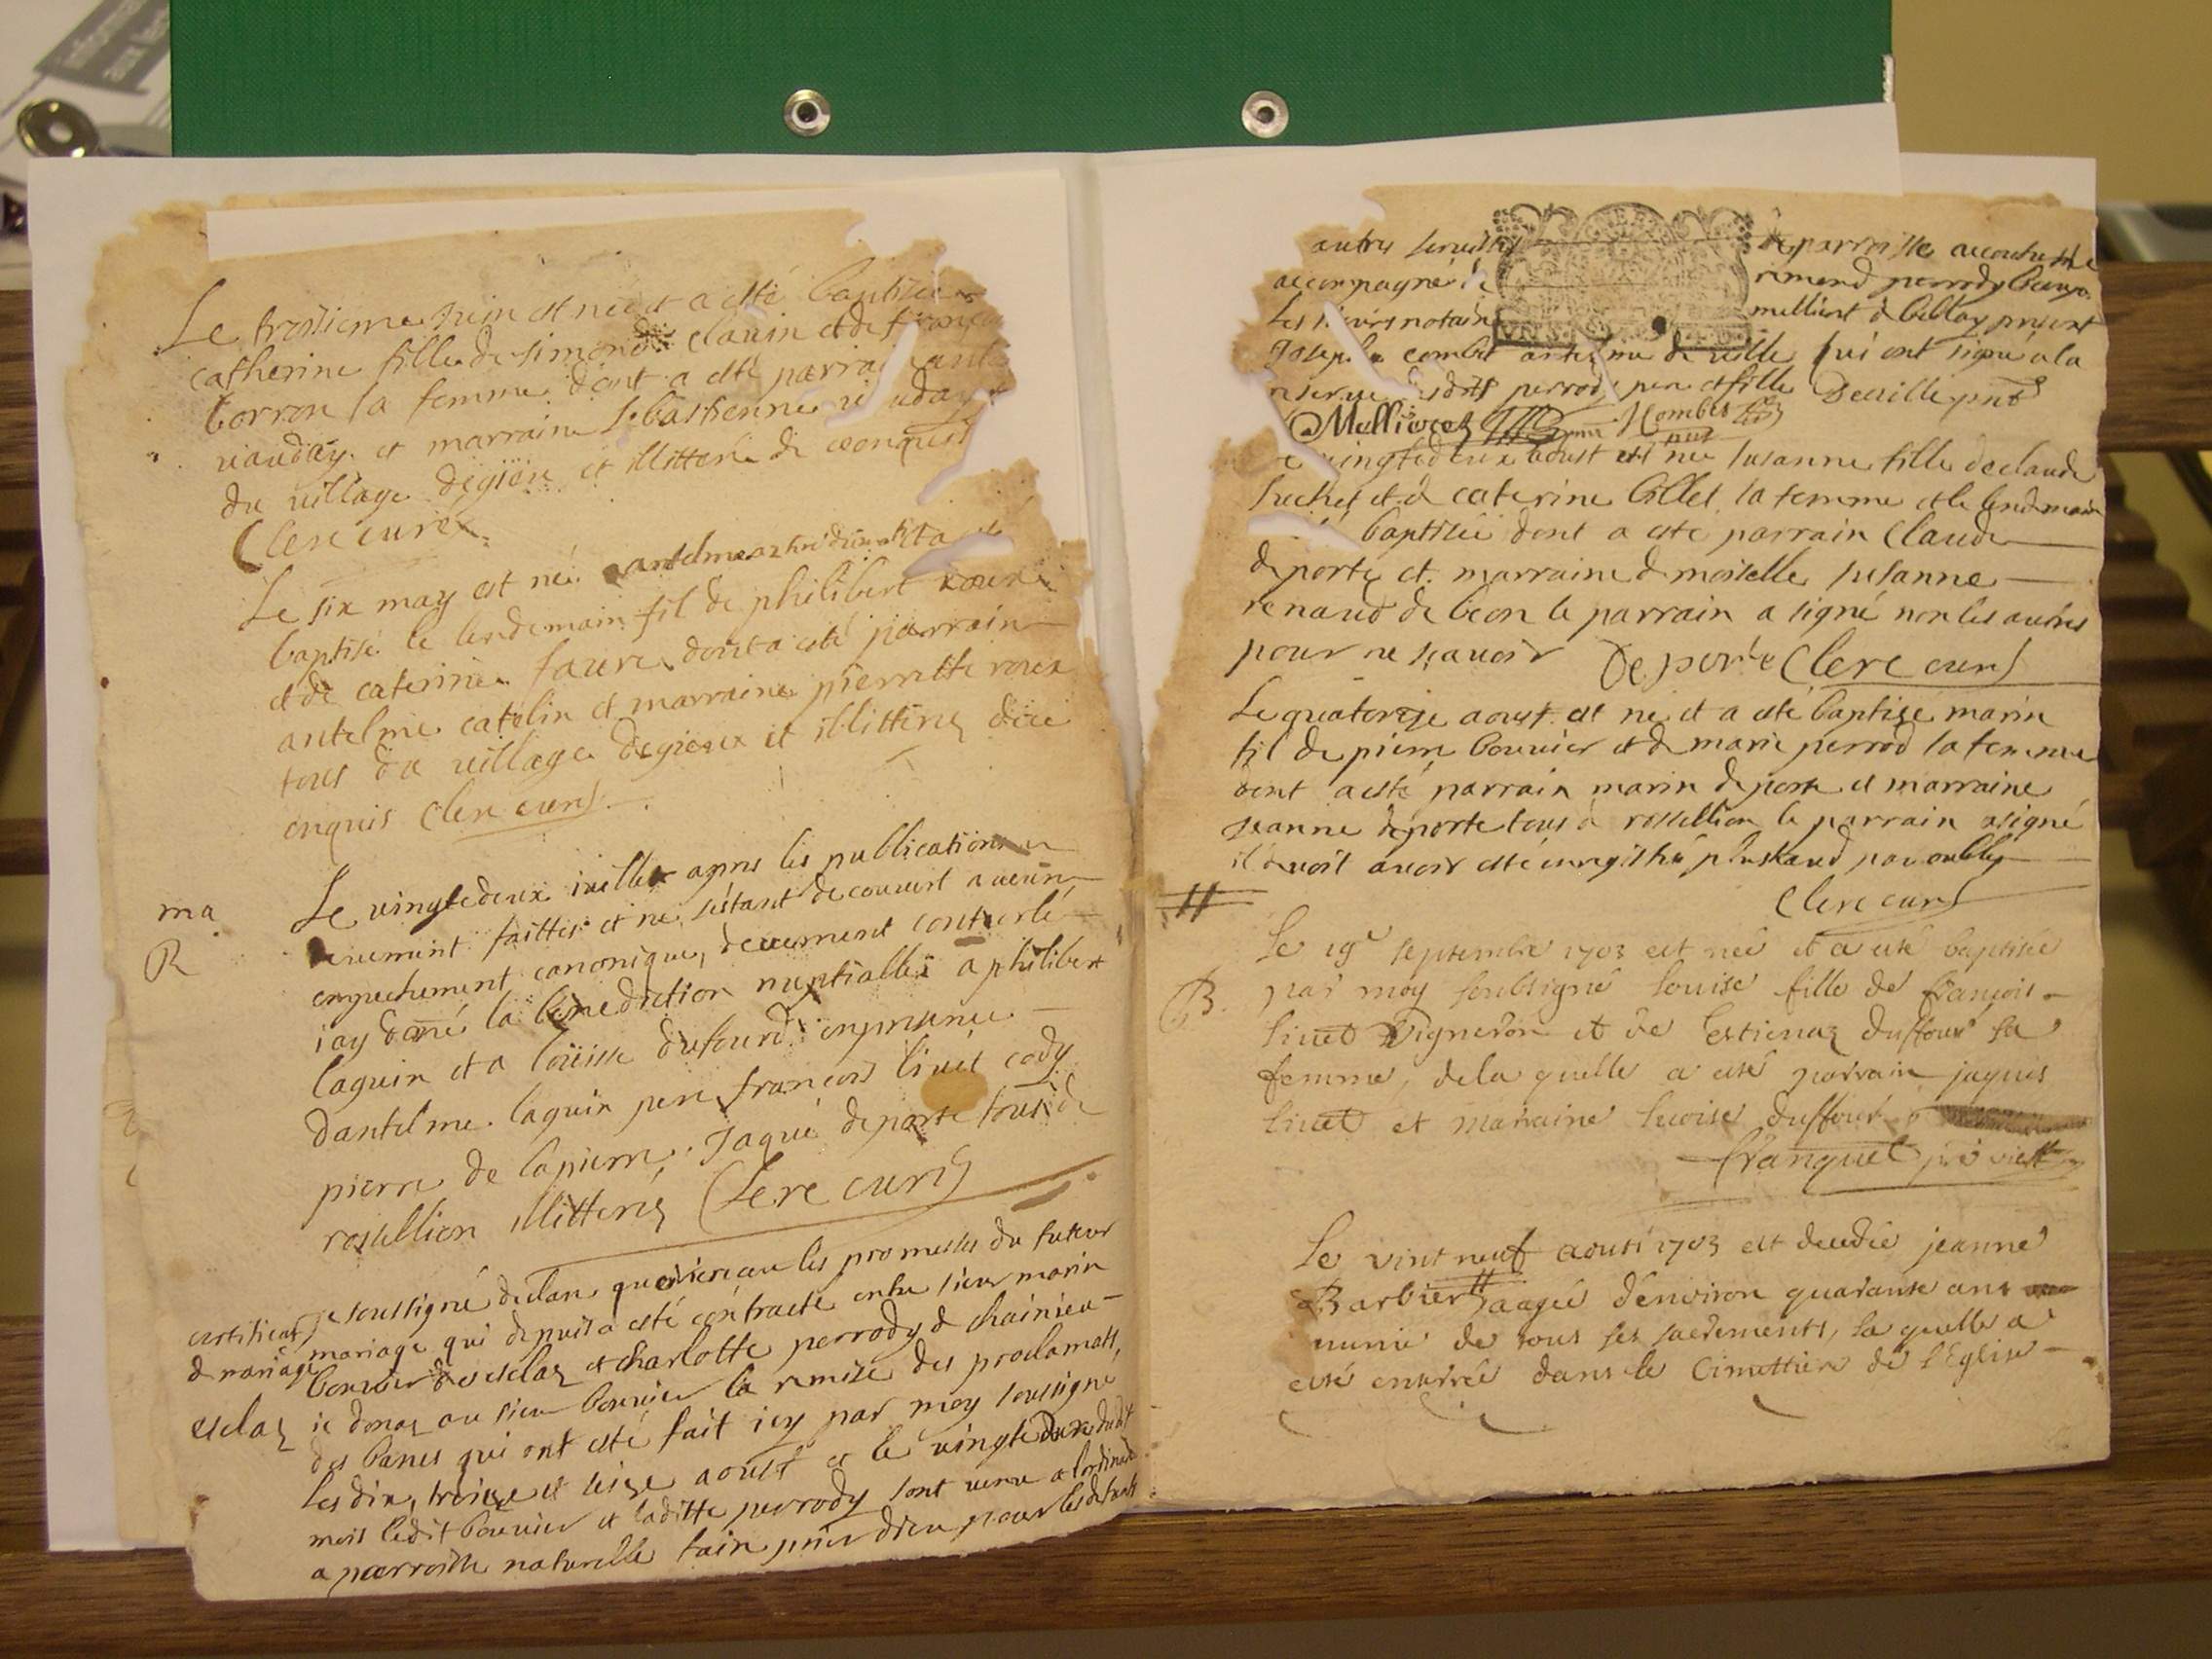 Le troisieme juin est née et a esté baptisée
catherine fille de simond clavin et de françoise
borron sa femme dont a esté parrain
vauday et marraine sebastienne
du village degieu et illitteré de
Clerc curé
Le six may est né antelme et a
baptisé le lendemain fil de philibert roux
et de caterine faure dont a esté parrain
antelme catelin et marraine pierrette roux
tous du village degieux et illitterez
enquis Clerc curé
ma
R
Le vingtedeux iuillet apres les publications
deuement faittes et ne s'estant decouvert aucun
empechement canonique, deuement controlé
iay doné la benediction nuptialle a philibert
laguin et a loüisse dufourd en presence
dantelme laguin pere françois livet cady
pierre de lapierre Jaque deporte tous de
rossellion illitterés Clerc curé
certificat
de mariage
esclaz
je soussigné declare que les promesses du futeur
mariage qui depuis a esté contracté entre sieur marin
bouvier desclaz et charlotte perrody de chainieu
ie donay au sieur bouvier la remise des proclamats
des bancs qui ont esté fait icy par moy soussigné
les dix, treize et seize aoust et le vingtedeux dudit
mois ledit bouvier et laditte perrody sont venu a lordinaire
a parroisse naturelle faire prier dieu pour les defunts
autres services
de parroisse accoutumé
accompagné de
rimond perrody
les sieurs notaire
mellieret de bellay present
Joseph combet antelme de ville qui ont signé a la
reserve desdits perrody pere et fille Deville pnt
Mellieret Combet
vingtedeux aoust est née susanne fille de claude
suchet et de caterine billet sa femme et le lendemain
baptisée dont a esté parrain Claude
deporte et marraine demoiselle susanne
renaud de beon le parrain a signé non les autres
pour ne sçavoir De porte Clerc curé
Le quatorze aoust est né et a esté baptisé marin
fil de pierre bouvier et de marie perrod sa femme
dont a esté parrain marin deporte et marraine
jeanne deporte tous de rossellion le parrain a signé
il devoit avoir esté enregistré plustard par oubly
Clerc curé
B
Le 19e septembre 1703 est née et a esté baptisée
par moy soubsigné Louise fille de françois
livet vigneron et de Estienaz duffour sa
femme, de la quelle a esté parrain jaques
livet et maraine lewise duffour
franquet
Le vint neuf aoust 1703 est decedée jeanne
Barbier aagée d'environ quarante ans
munie de tous ses sacrements, laquelle a
esté enterrée dans le Cimettiere de l'Eglise